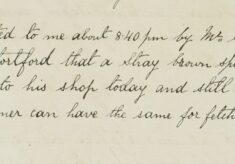 ted to me about 8.40 pm by Mr. s
ortford that a stray brown sp
to his shop today and still
ner can have the same for fetch